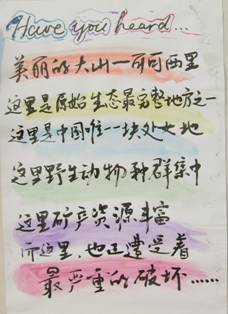 Have you heard...
美丽的大山一可可西里
这里是原始生态最完整地方之一
这里是中国唯一块处女地
这里野生动物种群集中
这里矿产资源丰富
而这里,也正遭受着
最严重的破坏……